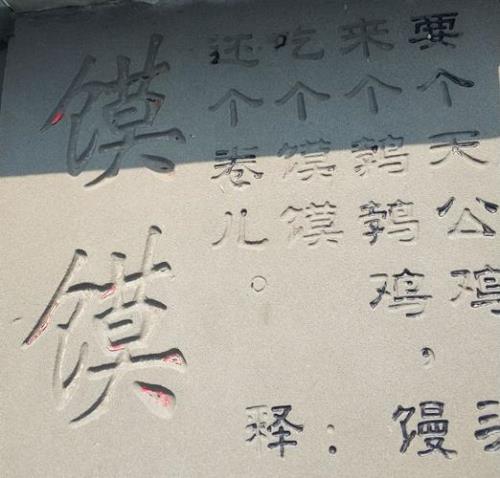 馍馍
要个天公鸡
来个鹁鹁鸡，
吃个馍馍
还个卷儿。
释：馒